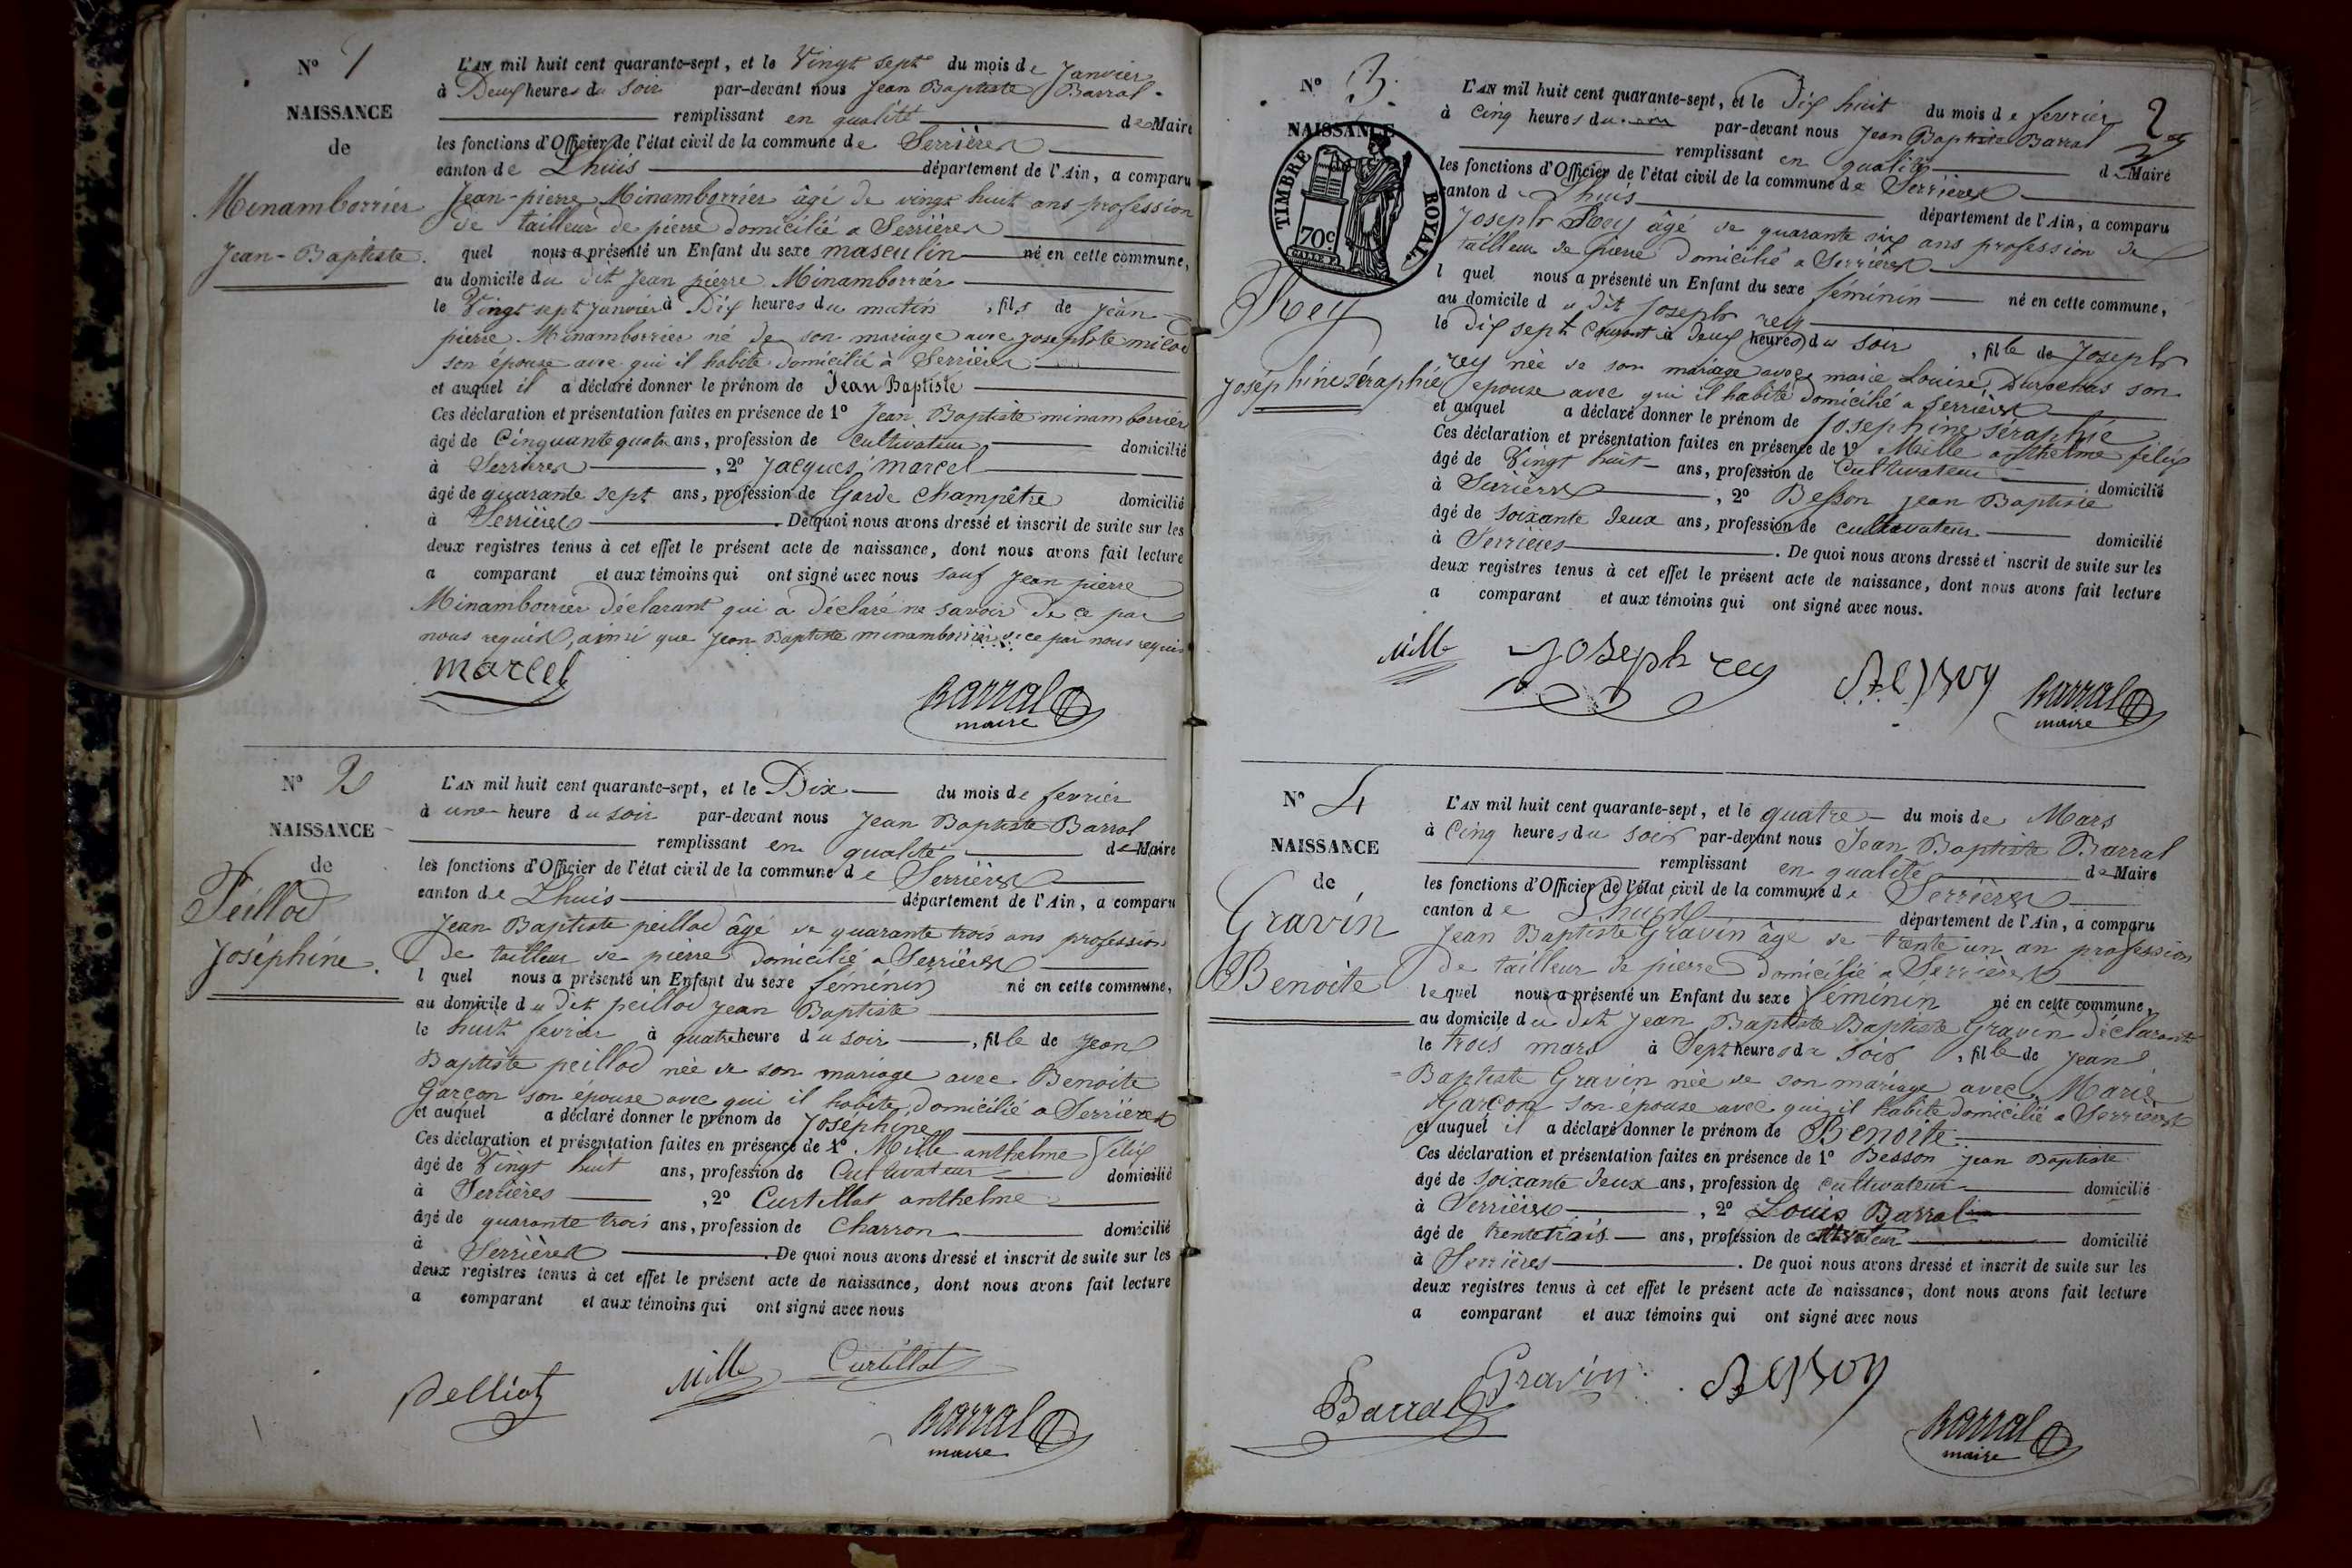 N° 1
NAISSANCE
de
Minamborrier
Jean-Baptiste.
L'AN mil huit cent quarante-sept, et le Vingt sept du mois de Janvier
à Deux heures du soir par-devant nous Jean Baptiste Barral
remplissant en qualité de Maire
les fonctions d'Officier de l'état civil de la commune de Serrières
canton de Lhuis département de l'Ain, a comparu
Jean-pierre Minamborrier âgé de vingt huit ans profession
de tailleur de pierre domicilié a Serrières
quel nous a présenté un Enfant du sexe masculin né en cette commune,
au domicile du dit Jean pierre Minamborrier
le Vingt sept Janvier à Dix heures du matin, fils de jean
pierre Minamborrier né de son mariage avec josephte
son épouse avec qui il habite domicilié à Serrières
et auquel il a déclaré donner le prénom de Jean Baptiste
Ces déclaration et présentation faites en présence de 1° Jean Baptiste minamborrier
âgé de Cinquante quatre ans, profession de Cultivateur domicilié
à Serrières, 2° Jacques marcel
âgé de quarante sept ans, profession de Garde Champêtre domicilié
à Serrières. De quoi nous avons dressé et inscrit de suite sur les
deux registres tenus à cet effet le présent acte de naissance, dont nous avons fait lecture
a comparant et aux témoins qui ont signé avec nous sauf Jean pierre
Minamborrier déclarant qui a déclaré ne savoir de ce par
nous requis, ainsi que Jean Baptiste minamborrier de ce par nous requis
marcel
Barral
maire
N° 2
NAISSANCE
de
Peillod
Joséphine.
L'AN mil huit cent quarante-sept, et le Dix du mois de fevrier
à une heure du soir par-devant nous Jean Baptiste Barral
remplissant en qualité de Maire
les fonctions d'Officier de l'état civil de la commune de Serrières
canton de Lhuis département de l'Ain, a comparu
Jean Baptiste peillod âgé de quarante trois ans profession
de tailleur de pierre domicilié a Serrières
l quel nous a présenté un Enfant du sexe féminin né en cette commune,
au domicile du dit peillod Jean Baptiste
le huit fevrier à quatre heure du soir, fille de Jean
Baptiste peillod née de son mariage avec Benoite
Garçon son épouse avec qui il habite domicilié a Serrières
et auquel a déclaré donner le prénom de Joséphine
Ces déclaration et présentation faites en présence de 1° Mille anthelme félix
âgé de Vingt huit ans, profession de Cultivateur domicilié
à Serrières, 2° Curtillat anthelme
âgé de quarante trois ans, profession de Charron domicilié
à Serrières. De quoi nous avons dressé et inscrit de suite sur les
deux registres tenus à cet effet le présent acte de naissance, dont nous avons fait lecture
a comparant et aux témoins qui ont signé avec nous
Mille Curtillat
pelliot
Barral
maire
2
N° 3.
NAISSANCE
TIMBRE ROYAL
70c
Rey
Joséphine séraphie
L'AN mil huit cent quarante-sept, et le Dix huit du mois de fevrier
à Cinq heures du par-devant nous Jean Baptiste Barral
remplissant en qualité de Maire
les fonctions d'Officier de l'état civil de la commune de Serrières
canton de Lhuis département de l'Ain, a comparu
Joseph Rey âgé de quarante six ans profession de
tailleur de pierre domicilié a Serrières
l quel nous a présenté un Enfant du sexe féminin né en cette commune,
au domicile du dit Joseph rey
le dix sept Courant à deux heures du soir, fille de Joseph
rey née de son mariage avec marie Louise son
epouse avec qui il habite domicilié a Serrières
et auquel a déclaré donner le prénom de Josephine séraphie
Ces déclaration et présentation faites en présence de 1° Mille anthelme félix
âgé de Vingt huit ans, profession de Cultivateur domicilié
à Serrières, 2° Besson Jean Baptiste
âgé de soixante deux ans, profession de cultivateur domicilié
à Serrières. De quoi nous avons dressé et inscrit de suite sur les
deux registres tenus à cet effet le présent acte de naissance, dont nous avons fait lecture
a comparant et aux témoins qui ont signé avec nous.
Mille Joseph rey Besson Barral
maire
N° 4
NAISSANCE
de
Gravin
Benoite
L'AN mil huit cent quarante-sept, et le quatre du mois de Mars
à Cinq heures du soir par-devant nous Jean Baptiste Barral
remplissant en qualité de Maire
les fonctions d'Officier de l'état civil de la commune de Serrières
canton de Lhuis département de l'Ain, a comparu
Jean Baptiste Gravin âgé de trente un an profession
de tailleur de pierre domicilié a Serrières
lequel nous a présenté un Enfant du sexe féminin né en cette commune,
au domicile du dit Jean Baptiste Baptiste Gravin déclarant
le trois mars à Sept heures du soir, fille de Jean
Baptiste Gravin née de son mariage avec Marie
Garçon son épouse avec qui il habite domicilié a Serrières
et auquel il a déclaré donner le prénom de Benoite
Ces déclaration et présentation faites en présence de 1° Besson Jean Baptiste
âgé de soixante deux ans, profession de cultivateur domicilié
à Serrières, 2° Louis Barral
âgé de trente trois ans, profession de domicilié
à Serrières. De quoi nous avons dressé et inscrit de suite sur les
deux registres tenus à cet effet le présent acte de naissance, dont nous avons fait lecture
a comparant et aux témoins qui ont signé avec nous
Gravin Besson
Barral
Barral
maire